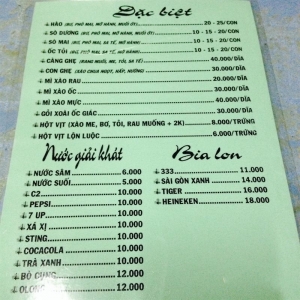 Đặc biệt
HÀO (XÚ, PHÔ MAI, MỠ HÀNH, MUỐI ỚT) 20 - 25/CON
SÒ DƯƠNG (XÚ, PHÔ MAI, MỠ HÀNH, MUỐI ỚT) 10 - 15 - 20/CON
SÒ MAI (XÚ, PHÔ MAI, SA TẾ, MỠ HÀNH) 10 - 15 - 20/CON
ỐC TỎI (XÚ, PHÔ MAI, SA TẾ, MỠ HÀNH) 10 - 15 - 20/CON
CÀNG GHẸ (RANG MUỐI, ME, TỎI, SA TẾ) 40.000/DĨA
CON GHẸ (XÀO CHUA NGỌT, HẤP, NƯỚNG) 30.000/DĨA
MÌ XÀO RAU 20.000/DĨA
MÌ XÀO ỐC 30.000/DĨA
MÌ XÀO MỰC 40.000/DĨA
GỎI XOÀI ỐC GIÁC 30.000/DĨA
HỘT VỊT (XÀO ME, BƠ, TỎI, RAU MUỐNG + 2K) 8.000/TRỨNG
HỘT VỊT LỘN LUỘC 6.000/TRỨNG
Nước giải khát
NƯỚC SÂM 6.000
NƯỚC SUỐI 5.000
C2 10.000
PEPSI 10.000
7 UP 10.000
XÁ XỊ 10.000
STING 10.000
COCACOLA 10.000
TRÀ XANH 10.000
BÒ CỤNG 12.000
OLONG 12.000
Bia lon
333 11.000
SÀI GÒN XANH 14.000
TIGER 16.000
HEINEKEN 18.000